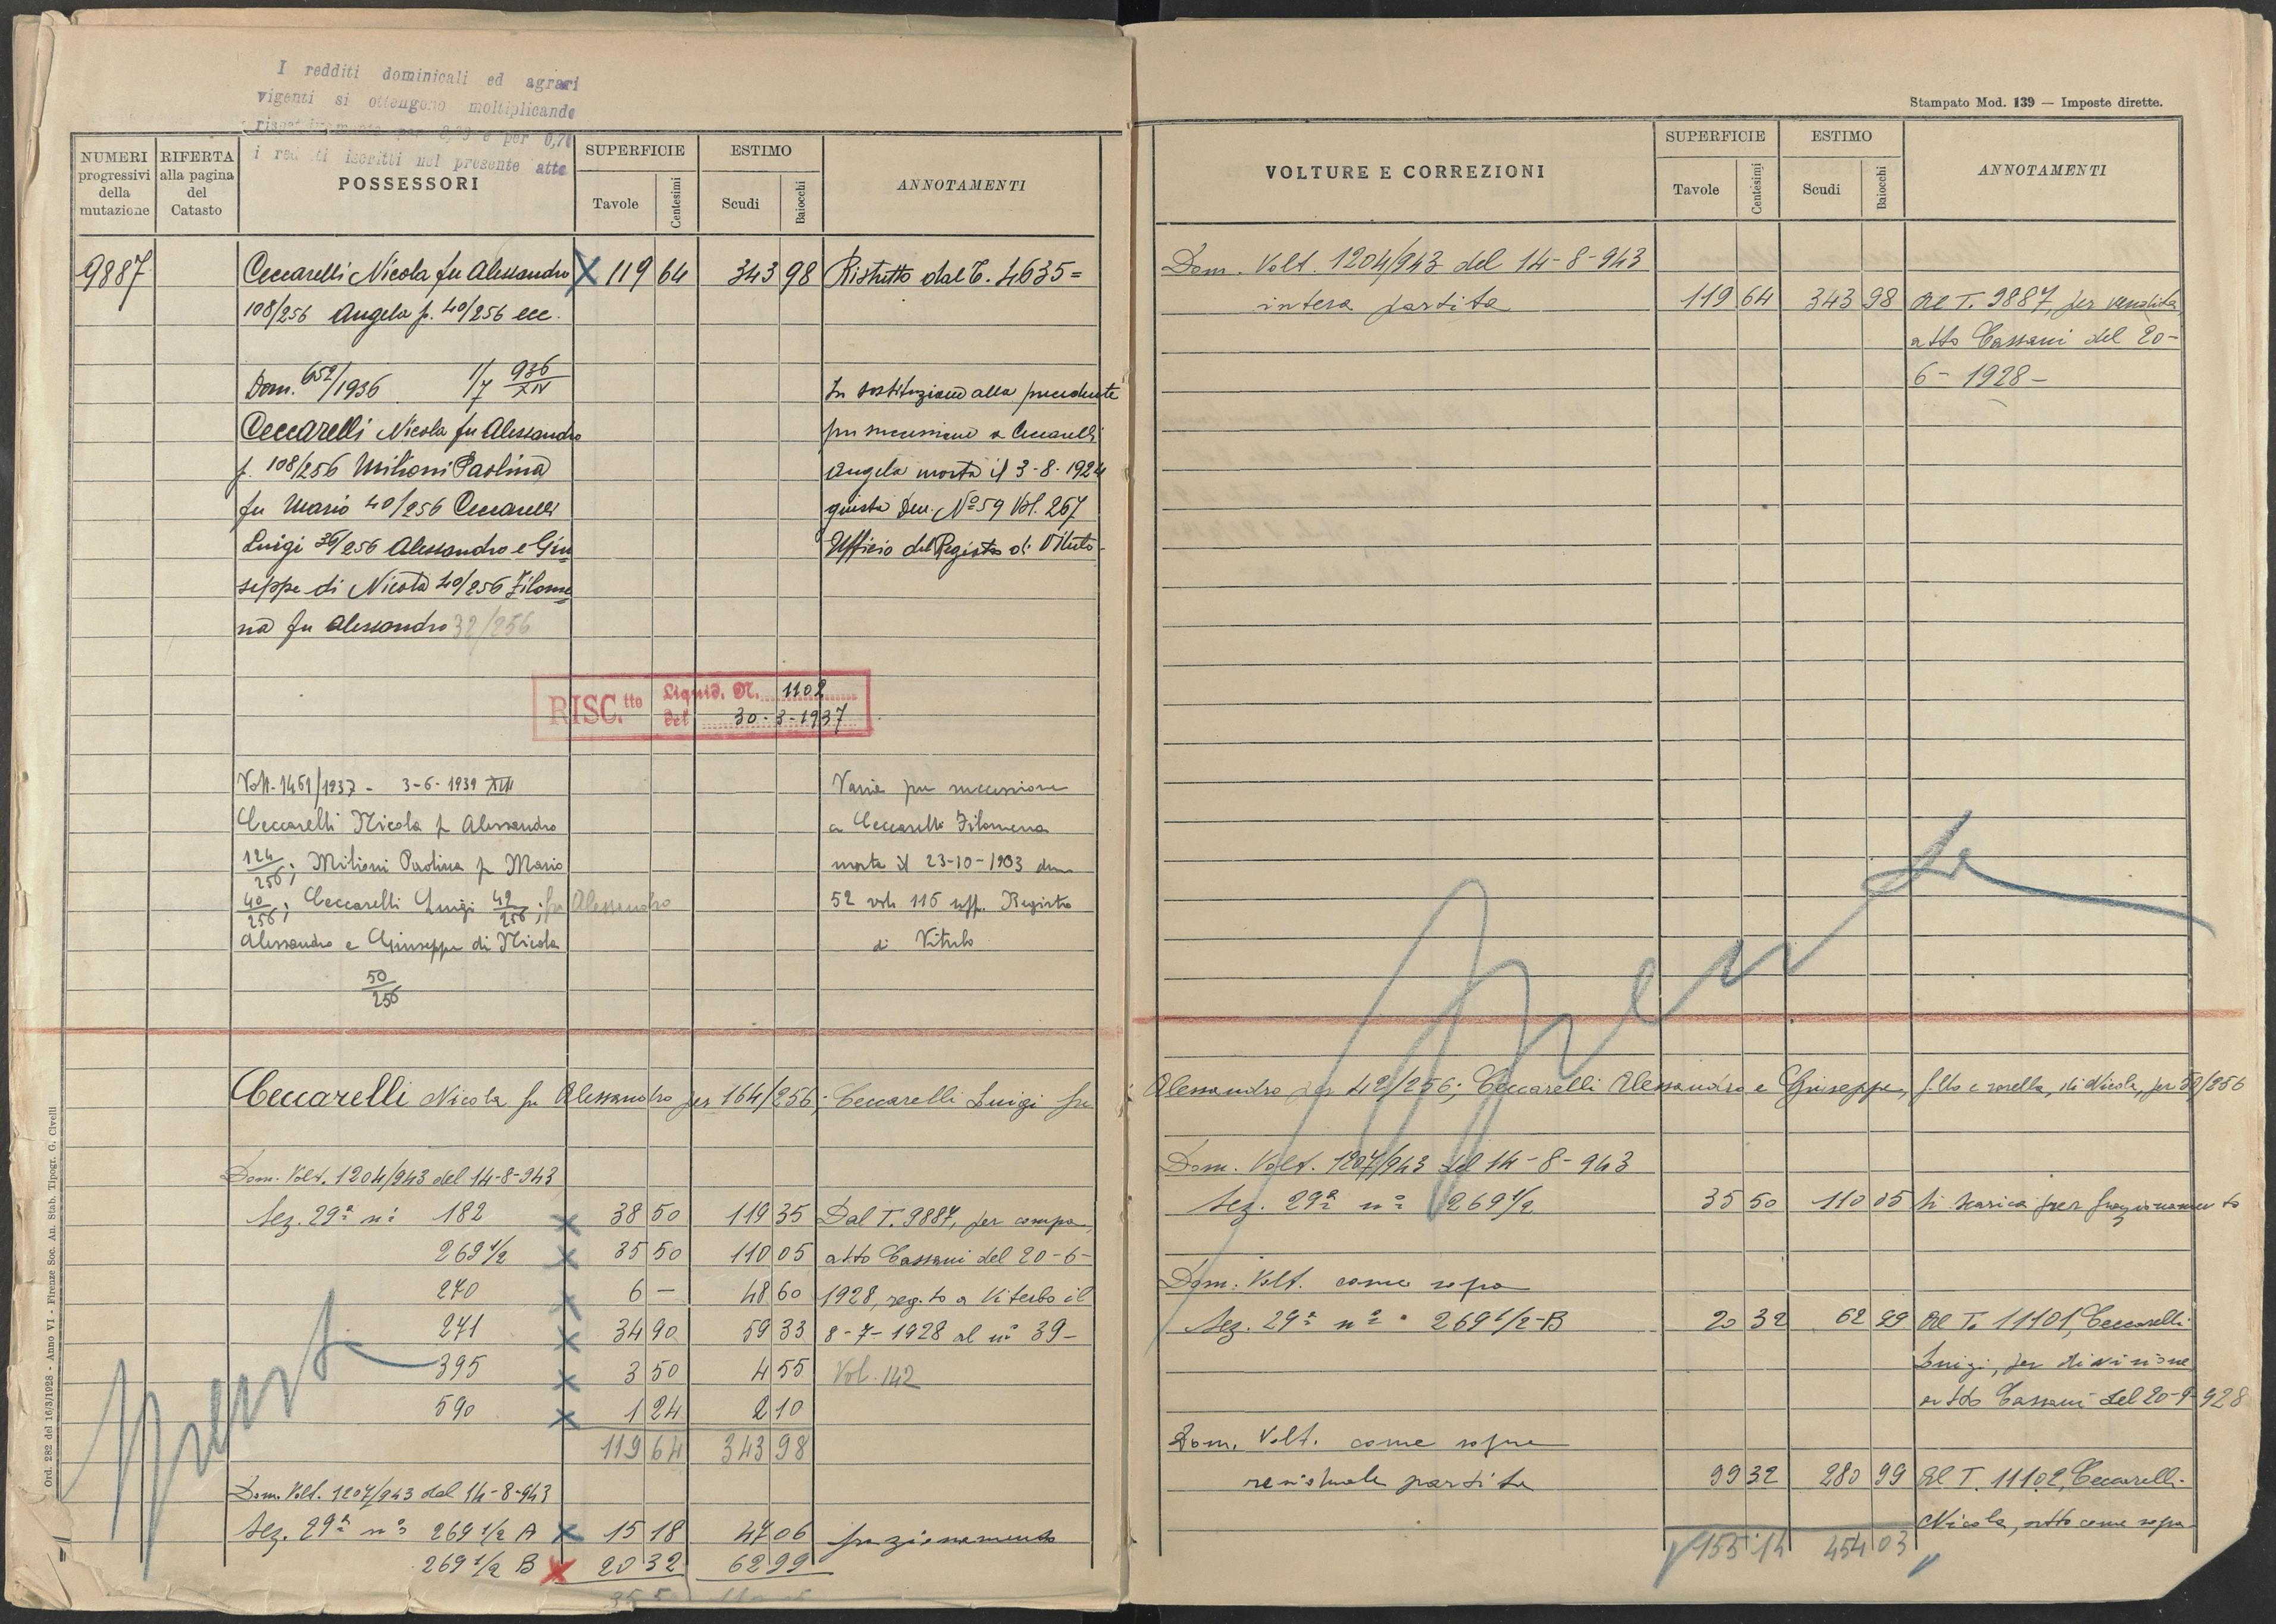 I redditi dominicali ed agrari
vigenti si ottengono moltiplicando
rispettivamente per e per 0,70
i redditi iscritti nel presente atto
NUMERI progressivi della mutazione
RIFERTA alla pagina del Catasto
POSSESSORI
SUPERFICIE
Tavole
Centesimi
ESTIMO
Scudi
Baiocchi
ANNOTAMENTI
9887 Ceccarelli Nicola fu Alessandro X 119 64 343 98 Ristretto dal T. 4635=
108/256 Angela p. 40/256 ecc.
Dom. 652/1936 1/7 936 XIV In sostituzione alla precedente
Ceccarelli Nicola fu Alessandro per successione a Ceccarelli
p. 108/256 Milioni Paolina Angela morta il 3-8-1924
fu Mario 40/256 Ceccarelli giusta Den. Nº 59 Vol. 267
Luigi 36/256 Alessandro e Giu Ufficio del Registro di Viterbo-
seppe di Nicola 40/256 Filome
na fu Alessandro 32/256
RISC.tto Liquid. N. 1102
del 30-3-1937
Volt. 1451/1937 - 3-6-1939 XVII Varia per successione
Ceccarelli Nicola f. Alessandro a Ceccarelli Filomena
124/256; Milioni Paolina f. Mario morta il 23-10-1903 den
40/256; Ceccarelli Luigi 42/256; fu Alessandro 52 vol. 115 uff. Registro
Alessandro e Giuseppe di Nicola di Viterbo
50/256
Ceccarelli Nicola fu Alessandro per 164/256; Ceccarelli Luigi fu
Dom. Volt. 1204/943 del 14-8-943
Sez. 29ª nº 182 X 38 50 119 35 Dal T. 9887, per compra,
269 1/2 X 35 50 110 05 atto Cassani del 20-6-
270 X 6 — 48 60 1928, reg.to a Viterbo il
271 X 34 90 59 33 8-7-1928 al nº 39-
395 X 3 50 4 55 Vol. 142
590 X 1 24 2 10
119 64 343 98
Dom. Volt. 1207/943 del 14-8-943
Sez. 29ª nº 269 1/2 A X 15 18 47 06 frazionamento
269 1/2 B X 20 32 62 99
35 5
Spenta
Ord. 282 del 16/3/1928 - Anno VI - Firenze Soc. An. Stab. Tipogr. G. Civelli
Stampato Mod. 139 — Imposte dirette.
VOLTURE E CORREZIONI
SUPERFICIE
Tavole
Centesimi
ESTIMO
Scudi
Baiocchi
ANNOTAMENTI
Dom. Volt. 1204/943 del 14-8-943
intera partita 119 64 343 98 Al T. 9887, per vendita,
atto Cassani del 20-
6-1928-
Spenta
Alessandro per 42/256; Ceccarelli Alessandro e Giuseppe, f.llo e sorella, di Nicola, per 50/256
Dom. Volt. 1207/943 del 14-8-943
Sez. 29ª nº 269 1/2 35 50 110 05 Si scarica per frazionamento
Dom. Volt. come sopra
Sez. 29ª nº 269 1/2-B 20 32 62 99 Al T. 11101, Ceccarelli
Luigi, per divisione
atto Cassani del 20-9-928
Dom. Volt. come sopra
residuale partita 99 32 280 99 Al T. 11102, Ceccarelli
Nicola, atto come sopra
155 14 454 03